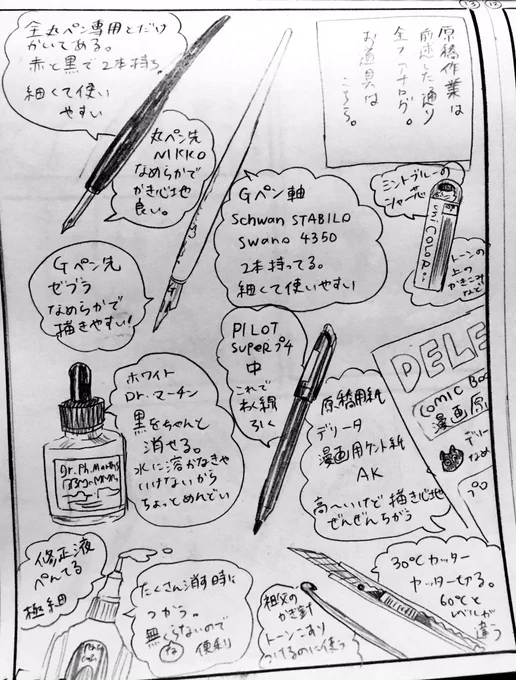 原稿作業は
前述した通り
全てアナログ。
お道具は
こちら。
全丸ペン専用とだけ
かいてある。
赤と黒で2本持ち。
細くて使い
やすい
丸ペン先
NIKKO
なめらかで
かき心地
良い。
Gペン軸
Schwan STABILO
Swano 4350
2本持ってる。
細くて使いやすい
ミントブルーの
シャー芯
uni COLOR
トーンの
上の
かきこみ
など
Gペン先
ゼブラ
なめらかで
描きやすい!
PILOT
SUPERプチ
中
これで
枠線
引く
ホワイト
Dr.マーチン
黒をちゃんと
消せる。
水に溶かなきゃ
いけないから
ちょっとめんどい
Dr.Ph.Martin's
原稿用紙
デリータ
漫画用ケント紙
AK
高〜いけど描き心地
ぜんぜんちがう
DELE
COMIC BOO
漫画原
デリー
なめ
修正液
ぺんてる
極細
たくさん消す時に
つかう。
無くならないので
便利
祖父の
かぎ針
トーンこすり
つけるのに使う
30℃カッター
ヤッター切る。
60℃と
いいが
違う